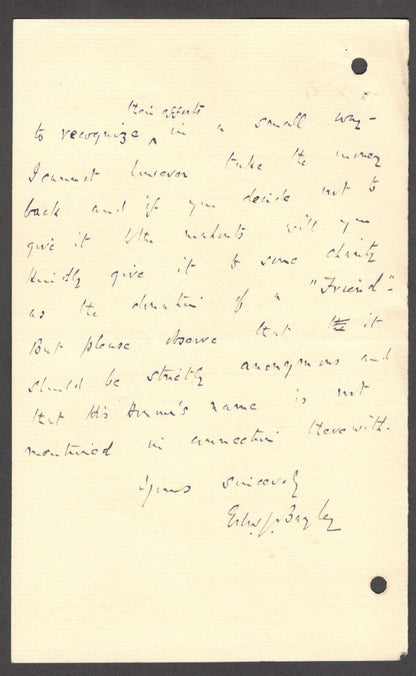 their efforts
to recognize ^ in a small way -
I cannot however take the money
back and if you decide not to
give it to the students will you
kindly give it to some charity
as the donation of a "Friend".
But please observe that the it
should be strictly anonymous and
that His Honour's name is not
mentioned in connection therewith.
Yours sincerely
Bagley